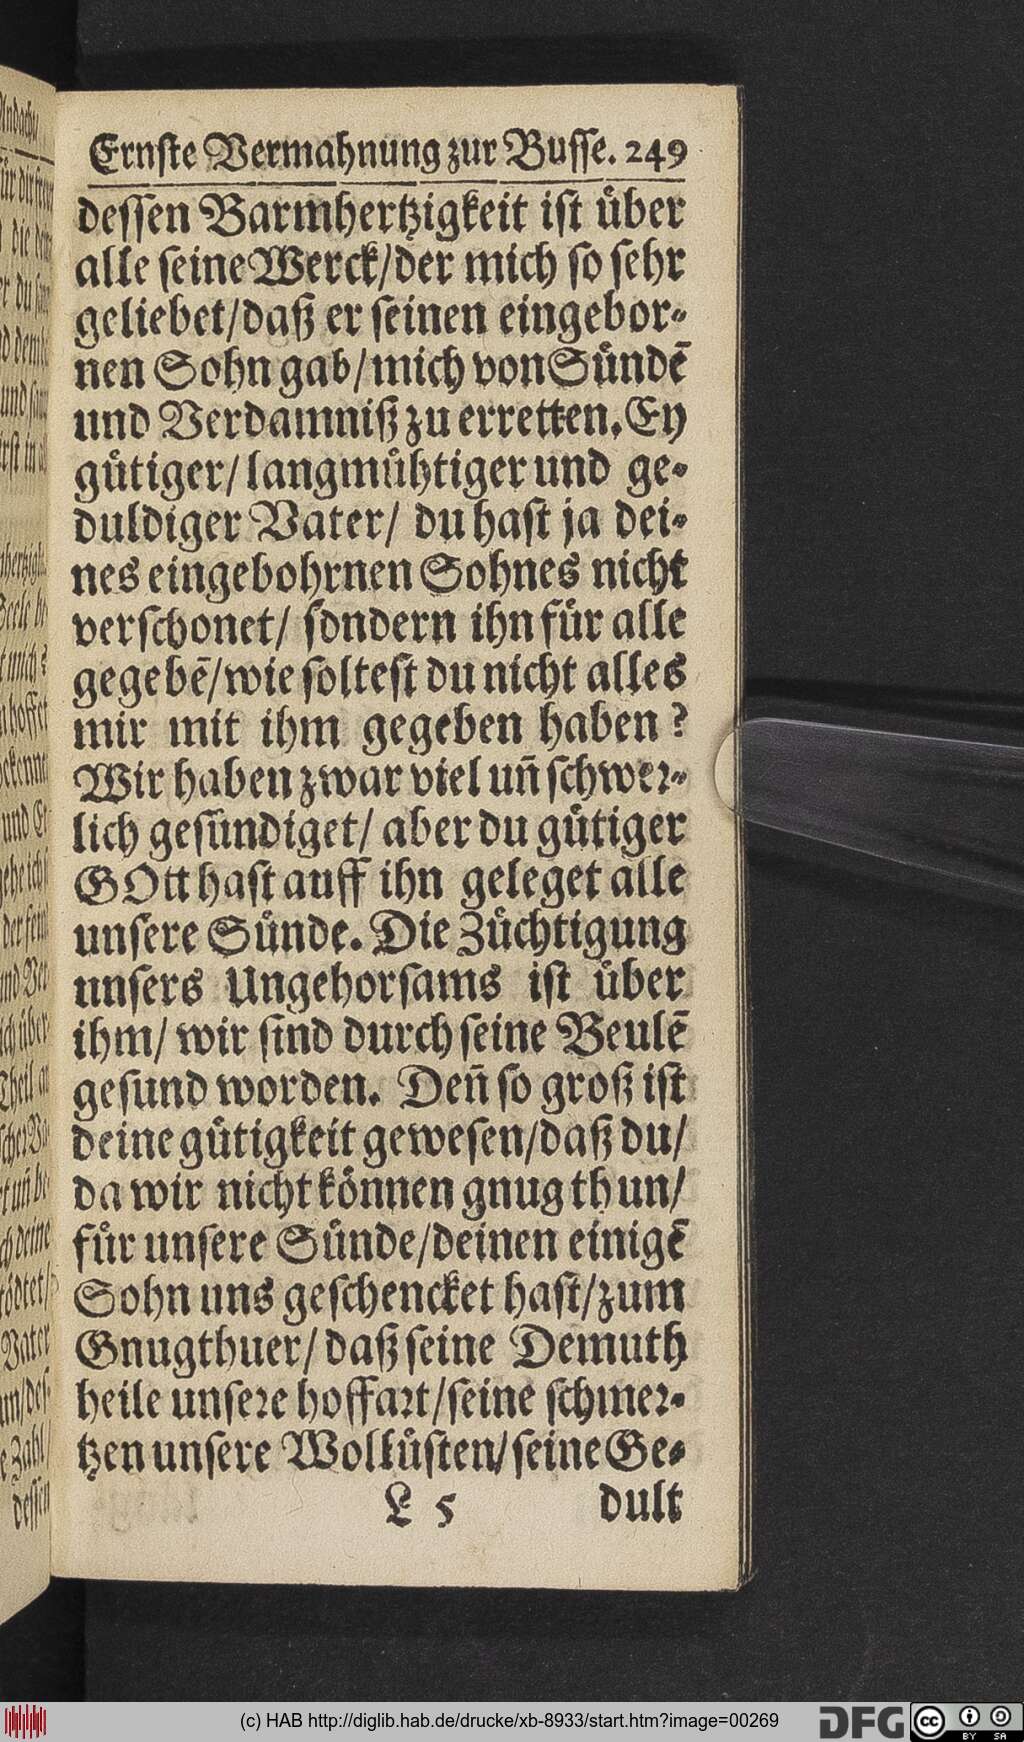 Ernste Vermahnung zur Busse. 249
dessen Barmhertzigkeit ist uͤber
alle seine Werck/der mich so sehr
geliebet/daß er seinen eingebor-
nen Sohn gab/mich von Suͤndẽ
und Verdamniß zu erretten. Ey
guͤtiger/langmuͤhtiger und ge-
duldiger Vater/ du hast ja dei-
nes eingebohrnen Sohnes nicht
verschonet/ sondern ihn fuͤr alle
gegebẽ/wie soltest du nicht alles
mir mit ihm gegeben haben?
Wir haben zwar viel uñ schwer-
lich gesuͤndiget/ aber du guͤtiger
GOtt hast auff ihn geleget alle
unsere Suͤnde. Die Zuͤchtigung
unsers Ungehorsams ist uͤber
ihm/ wir sind durch seine Beulẽ
gesund worden. Deñ so groß ist
deine guͤtigkeit gewesen/daß du/
da wir nicht koͤnnen gnug thun/
fuͤr unsere Suͤnde/deinen einigẽ
Sohn uns geschencket hast/zum
Gnugthuer/ daß seine Demuth
heile unsere hoffart/seine schmer-
tzen unsere Wollüsten/seine Ge-
L 5 dult
(c) HAB http://diglib.hab.de/drucke/xb-8933/start.htm?image=00269
DFG
cc BY SA